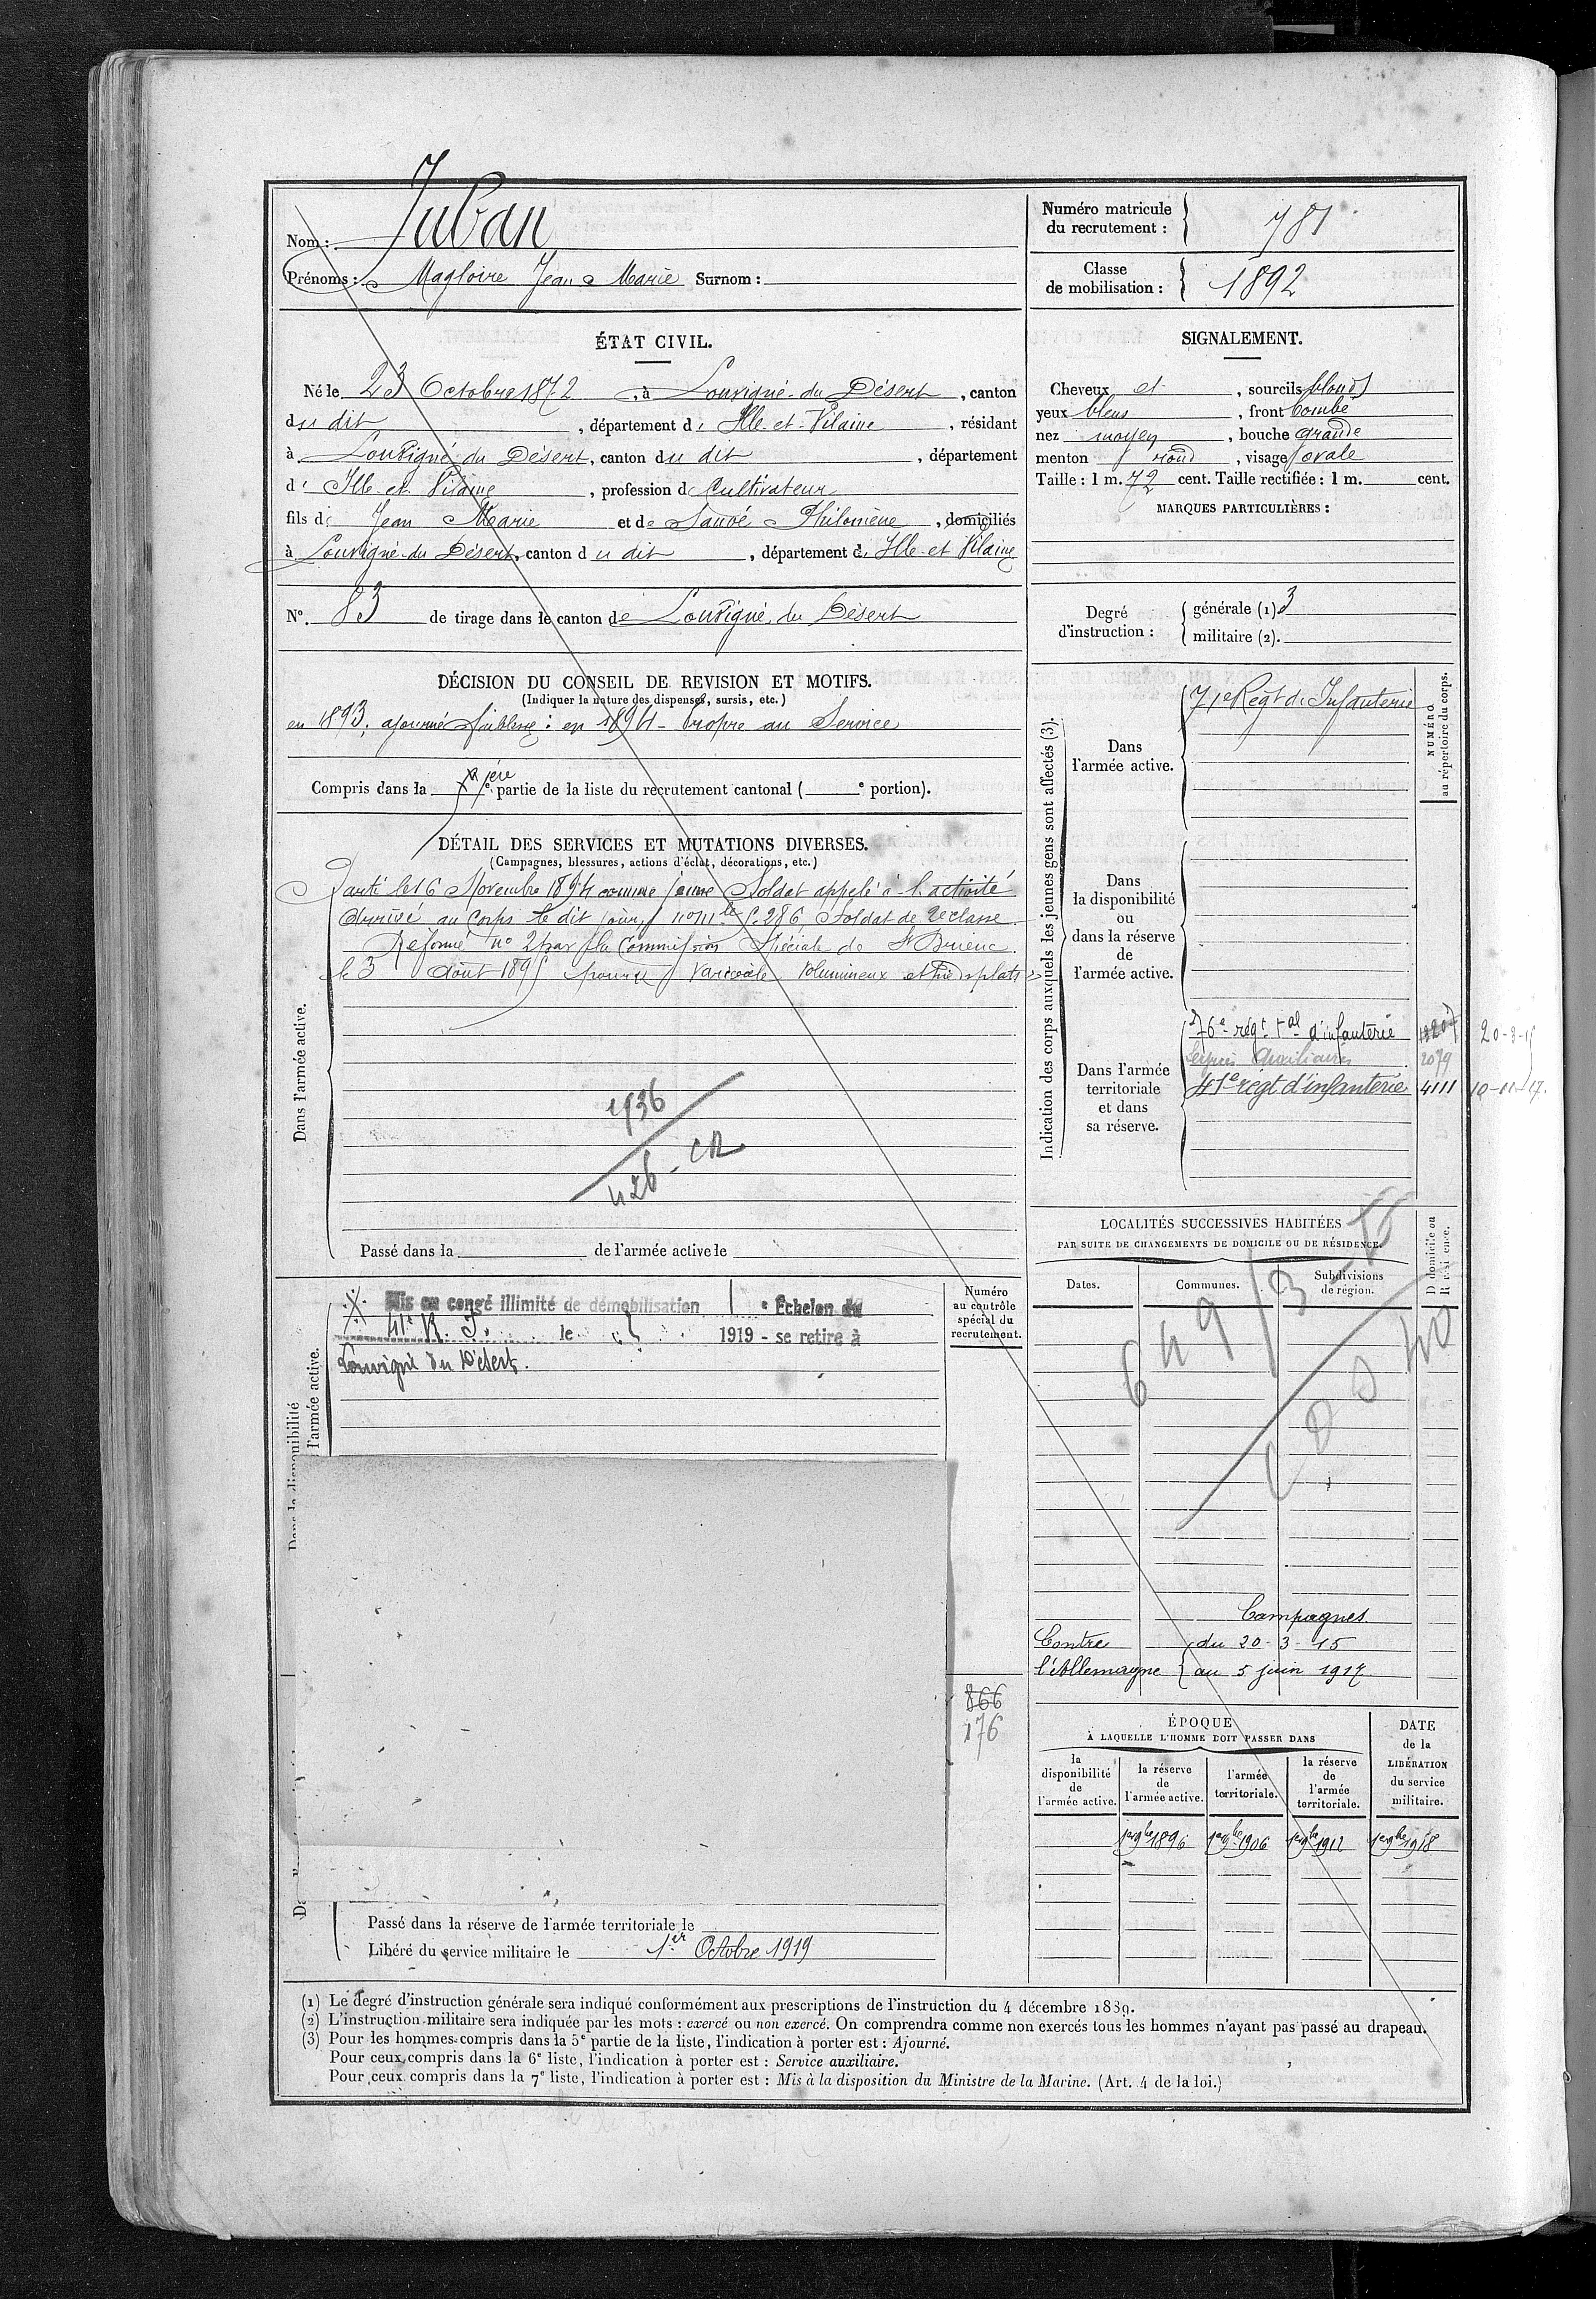 Nom : Juban
Prénoms : Magloire Jean Marie Surnom :
Numéro matricule du recrutement : 781
Classe de mobilisation : 1892
ÉTAT CIVIL.
Né le 23 Octobre 1872, à Louvigné-du Désert, canton
du dit, département d'Ille-et-Vilaine, résidant
à Louvigné du Désert, canton du dit, département
d'Ille et Vilaine, profession de Cultivateur
fils de Jean Marie et de Sauvé Philomène, domiciliés
à Louvigné-du Désert, canton du dit, département d'Ille-et Vilaine
N°. 83 de tirage dans le canton de Louvigné du Désert
DÉCISION DU CONSEIL DE REVISION ET MOTIFS.
(Indiquer la nature des dispenses, sursis, etc.)
en 1893, ajourné faiblesse : en 1894 - Propre au Service
Compris dans la 1ère partie de la liste du recrutement cantonal ( e portion).
DÉTAIL DES SERVICES ET MUTATIONS DIVERSES.
(Campagnes, blessures, actions d'éclat, décorations, etc.)
Dans l'armée active.
Parti le 16 Novembre 1894 comme jeune Soldat appelé à l'activité
Arrivé au Corps le dit jour, n° mle 5286 Soldat de 2e classe
Réformé n° 2 par la Commission Spéciale de St Brieuc
le 3 Août 1895 pour varicocèle volumineux et pieds plats
1936
426 - CR
Passé dans la de l'armée active le
Dans la disponibilité
l'armée active.
Mis en congé illimité de démobilisation e Échelon du
41e R. I. le 1919 - se retire à
Louvigné du Désert.
Numéro au contrôle spécial du recrutement.
866
176
Passé dans la réserve de l'armée territoriale le
Libéré du service militaire le 1er Octobre 1919
SIGNALEMENT.
Cheveux et, sourcils blonds
yeux bleus, front bombé
nez moyen, bouche grande
menton rond, visage ovale
Taille : 1 m. 72 cent. Taille rectifiée : 1 m. cent.
MARQUES PARTICULIÈRES :
Degré d'instruction : générale (1) 3
militaire (2).
Indication des corps auxquels les jeunes gens sont affectés (3).
NUMÉRO au répertoire du corps.
Dans l'armée active.
71e Régt d'Infanterie
Dans la disponibilité ou dans la réserve de l'armée active.
Dans l'armée territoriale et dans sa réserve.
76e régt tal d'infanterie 20-3-15
Services Auxiliaires 2079
41e régt d'infanterie 4111 10-11-17.
LOCALITÉS SUCCESSIVES HABITÉES
PAR SUITE DE CHANGEMENTS DE DOMICILE OU DE RÉSIDENCE.
Dates. Communes. Subdivisions de région. D domicile ou R résidence.
Campagnes
Contre l'Allemagne du 20-3-15
au 5 juin 1917
ÉPOQUE
À LAQUELLE L'HOMME DOIT PASSER DANS
la disponibilité de l'armée active. la réserve de l'armée active. l'armée territoriale. la réserve de l'armée territoriale. DATE de la LIBÉRATION du service militaire.
1er 9bre 1896 1er 9bre 1906 1er 9bre 1912 1er 9bre 1918
(1) Le degré d'instruction générale sera indiqué conformément aux prescriptions de l'instruction du 4 décembre 1889.
(2) L'instruction militaire sera indiquée par les mots : exercé ou non exercé. On comprendra comme non exercés tous les hommes n'ayant pas passé au drapeau.
(3) Pour les hommes compris dans la 5e partie de la liste, l'indication à porter est : Ajourné.
Pour ceux compris dans la 6e liste, l'indication à porter est : Service auxiliaire.
Pour ceux compris dans la 7e liste, l'indication à porter est : Mis à la disposition du Ministre de la Marine. (Art. 4 de la loi.)